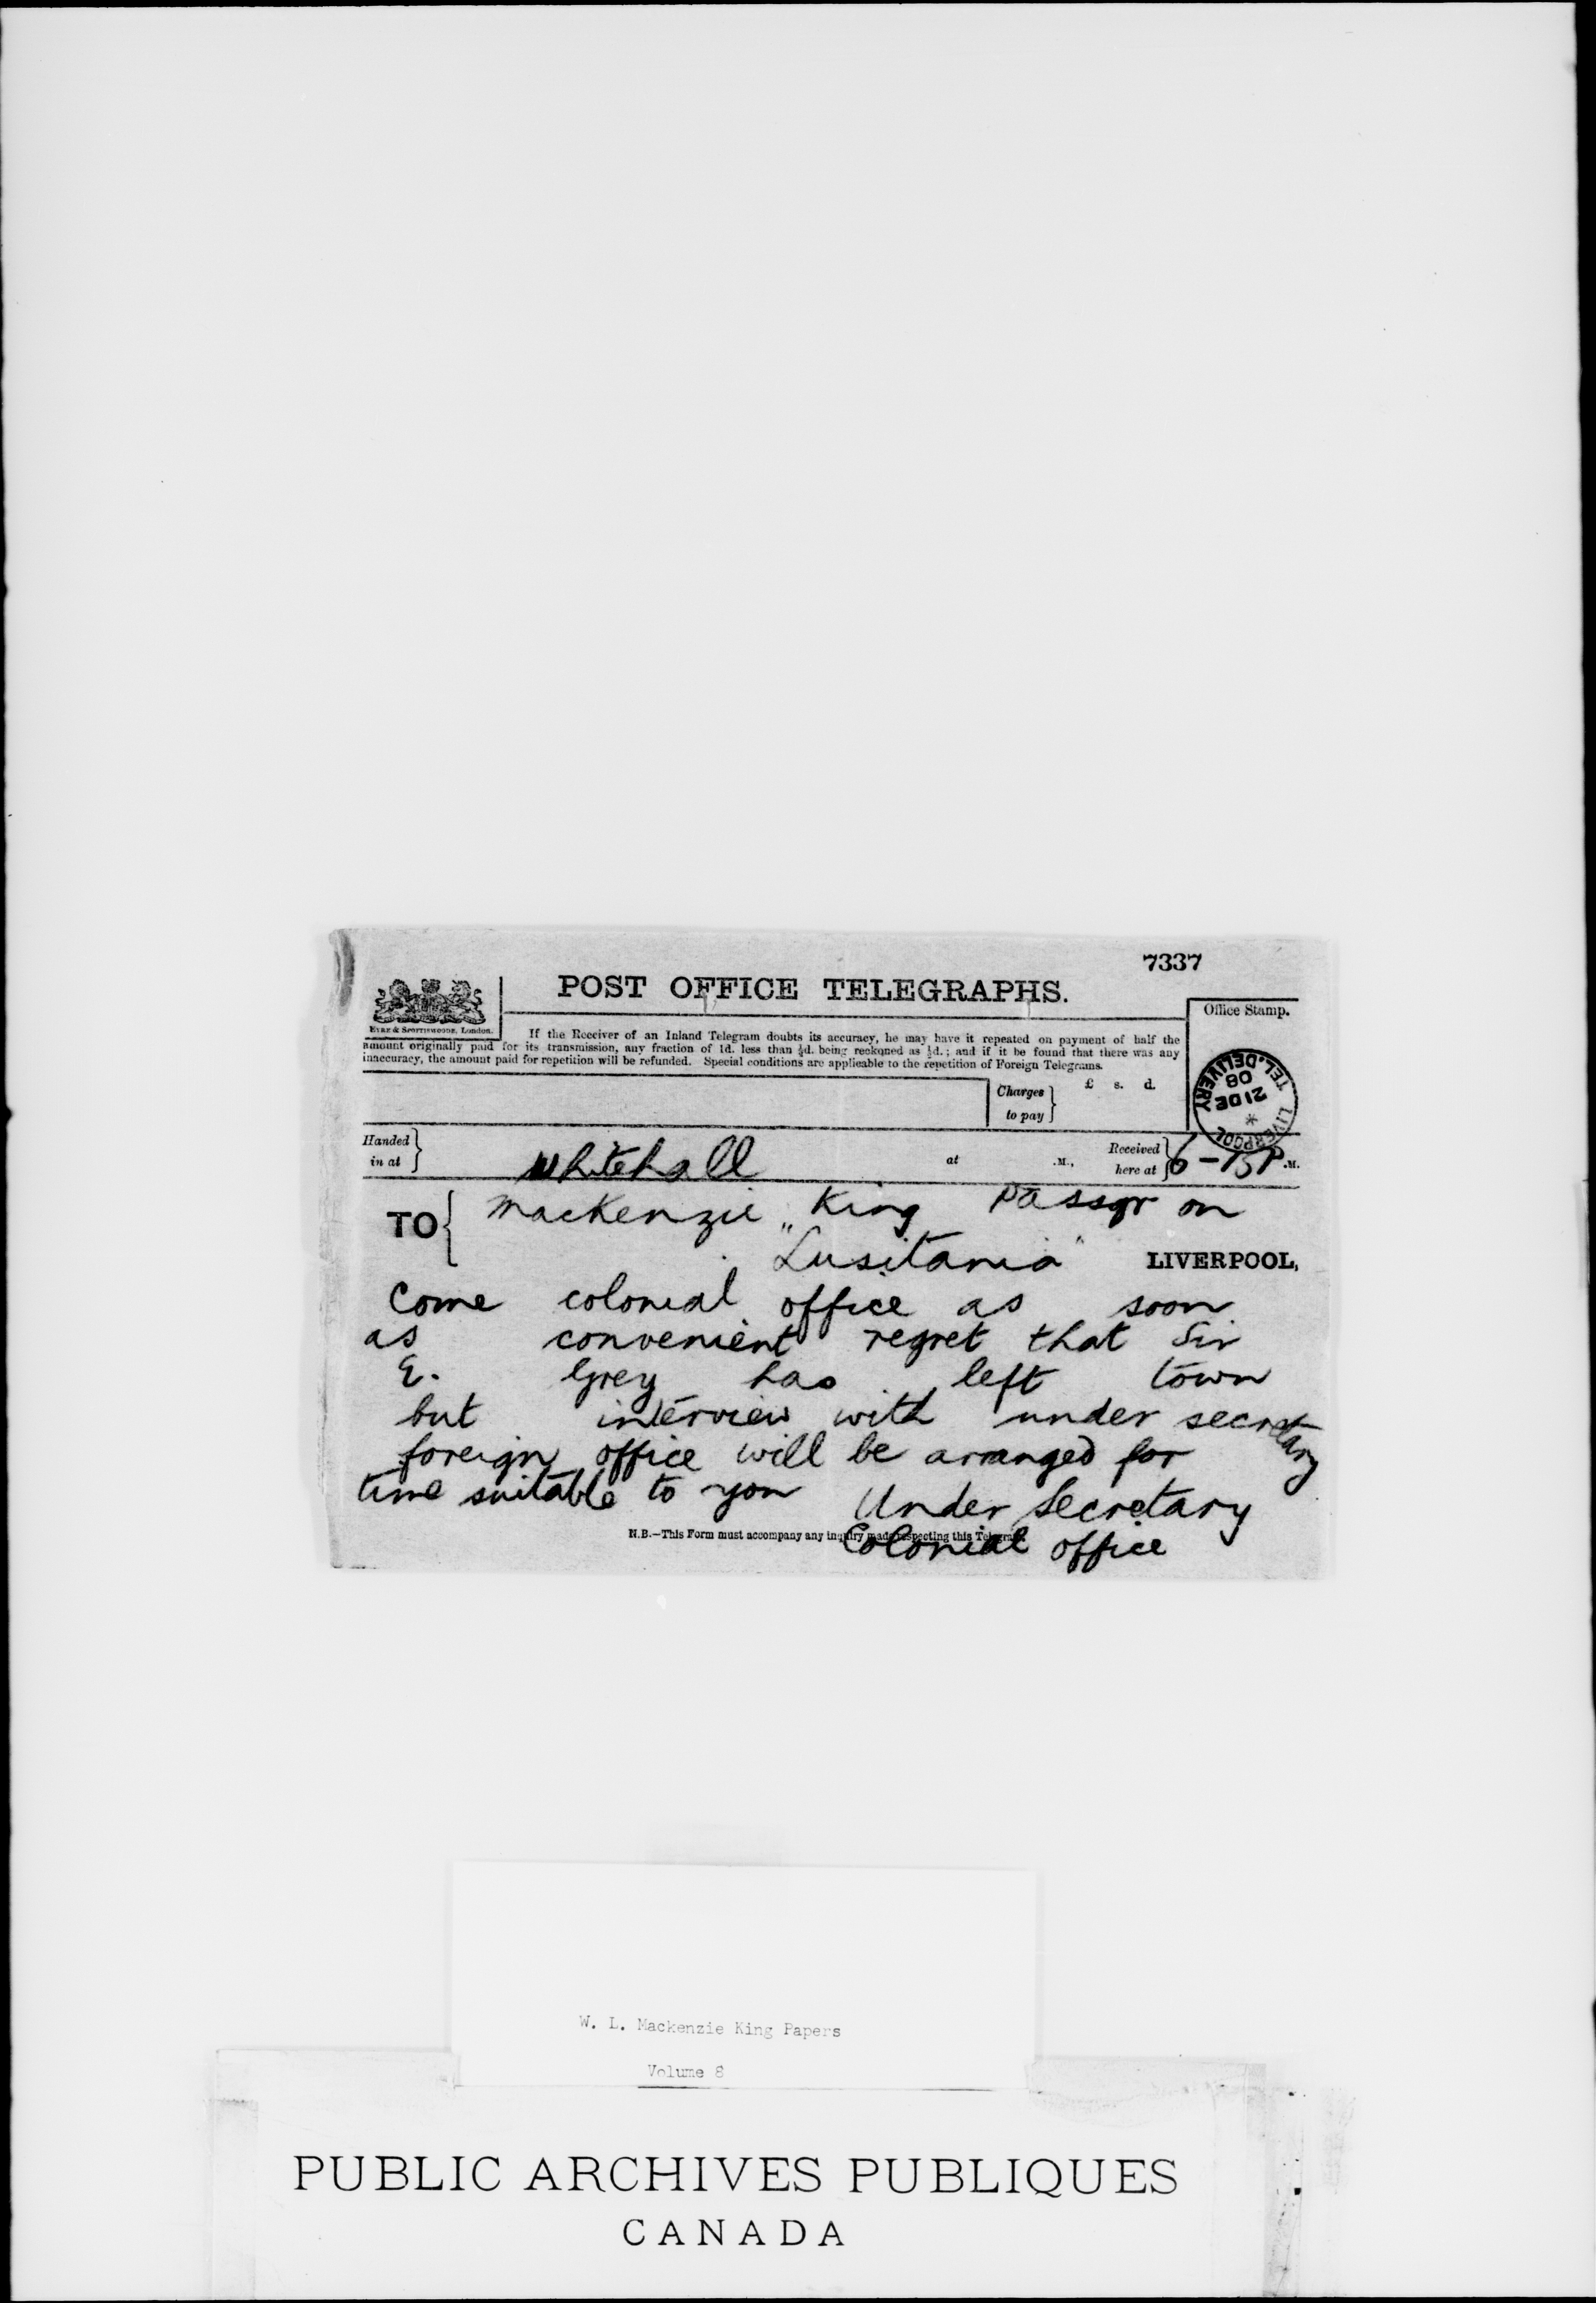 7337
POST OFFICE TELEGRAPHS.
EYRE & SPOTTISWOODE, London.
Office Stamp.
If the Receiver of an Inland Telegram doubts its accuracy, he may have it repeated on payment of half the
amount originally paid for its transmission, any fraction of 1d. less than ½d. being reckoned as ½d.; and if it be found that there was any
inaccuracy, the amount paid for repetition will be refunded. Special conditions are applicable to the repetition of Foreign Telegrams.
Charges to pay } £ s. d.
TEL. DELIVERY LIVERPOOL
21 DE
08
Handed in at } Whitehall at .M., Received here at } 6-15P.M.
TO { Mackenzie King Passgr on
"Lusitania" LIVERPOOL,
Come colonial office as soon
as convenient regret that Sir
E. Grey has left town
but interview with under secretary
foreign office will be arranged for
time suitable to you Under Secretary
Colonial office
N.B.—This Form must accompany any inquiry made respecting this Telegram.
W. L. Mackenzie King Papers
Volume 8
PUBLIC ARCHIVES PUBLIQUES
CANADA